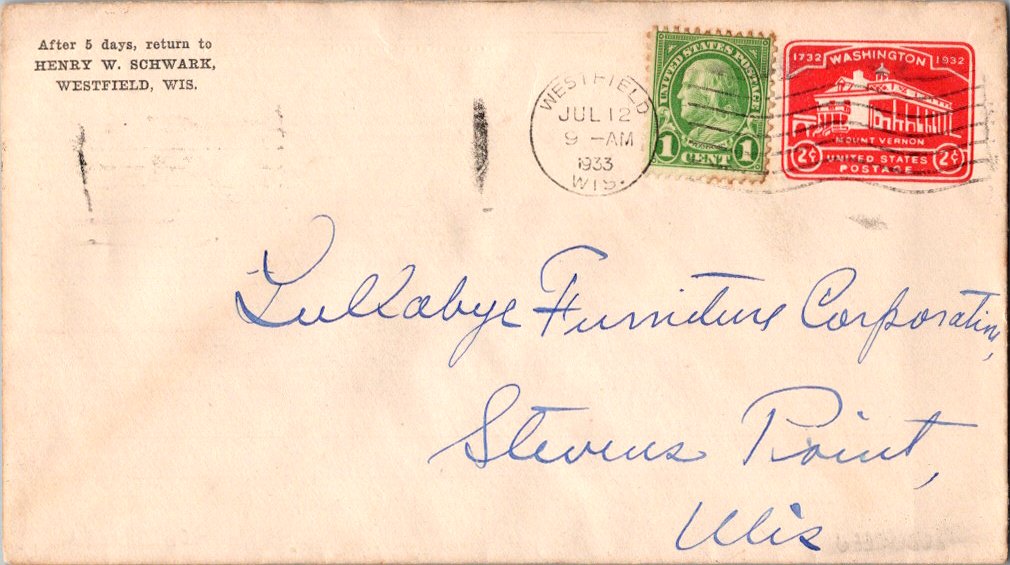 After 5 days, return to
HENRY W. SCHWARK,
WESTFIELD, WIS.
WESTFIELD
JUL 12
9 - AM
1933
WIS.
UNITED STATES POSTAGE
1 CENT 1
1732 WASHINGTON 1932
MOUNT VERNON
2¢ UNITED STATES 2¢
POSTAGE
Lullabye Furniture Corporation,
Stevens Point,
Wis